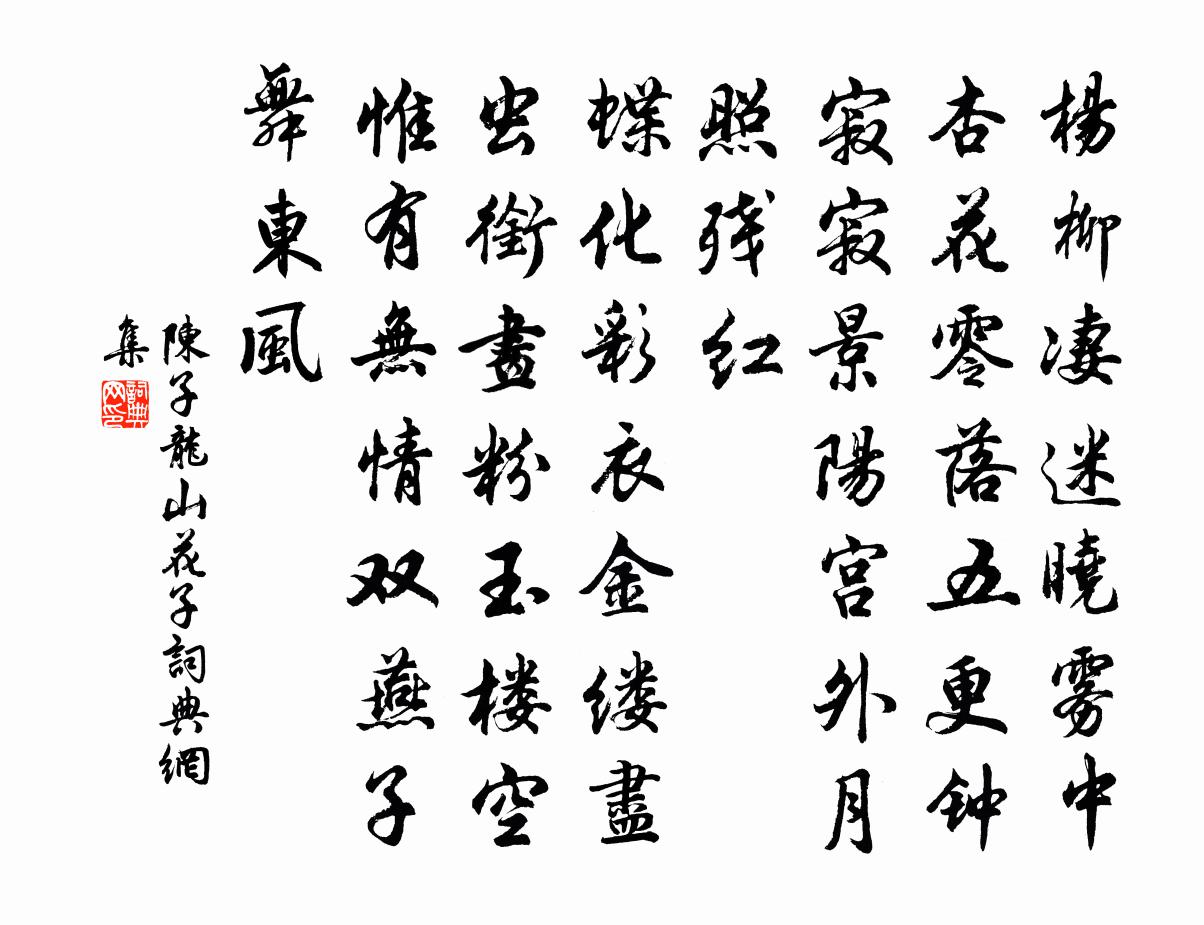 楊柳凄迷曉雾中
杏花零落五更钟
寂寂景陽宫外月
照残红
蝶化彩衣金缕盡
虫銜畫粉玉楼空
惟有無情双燕子
舞東風
陳子龍山花子詞典網
集
詞典
网印